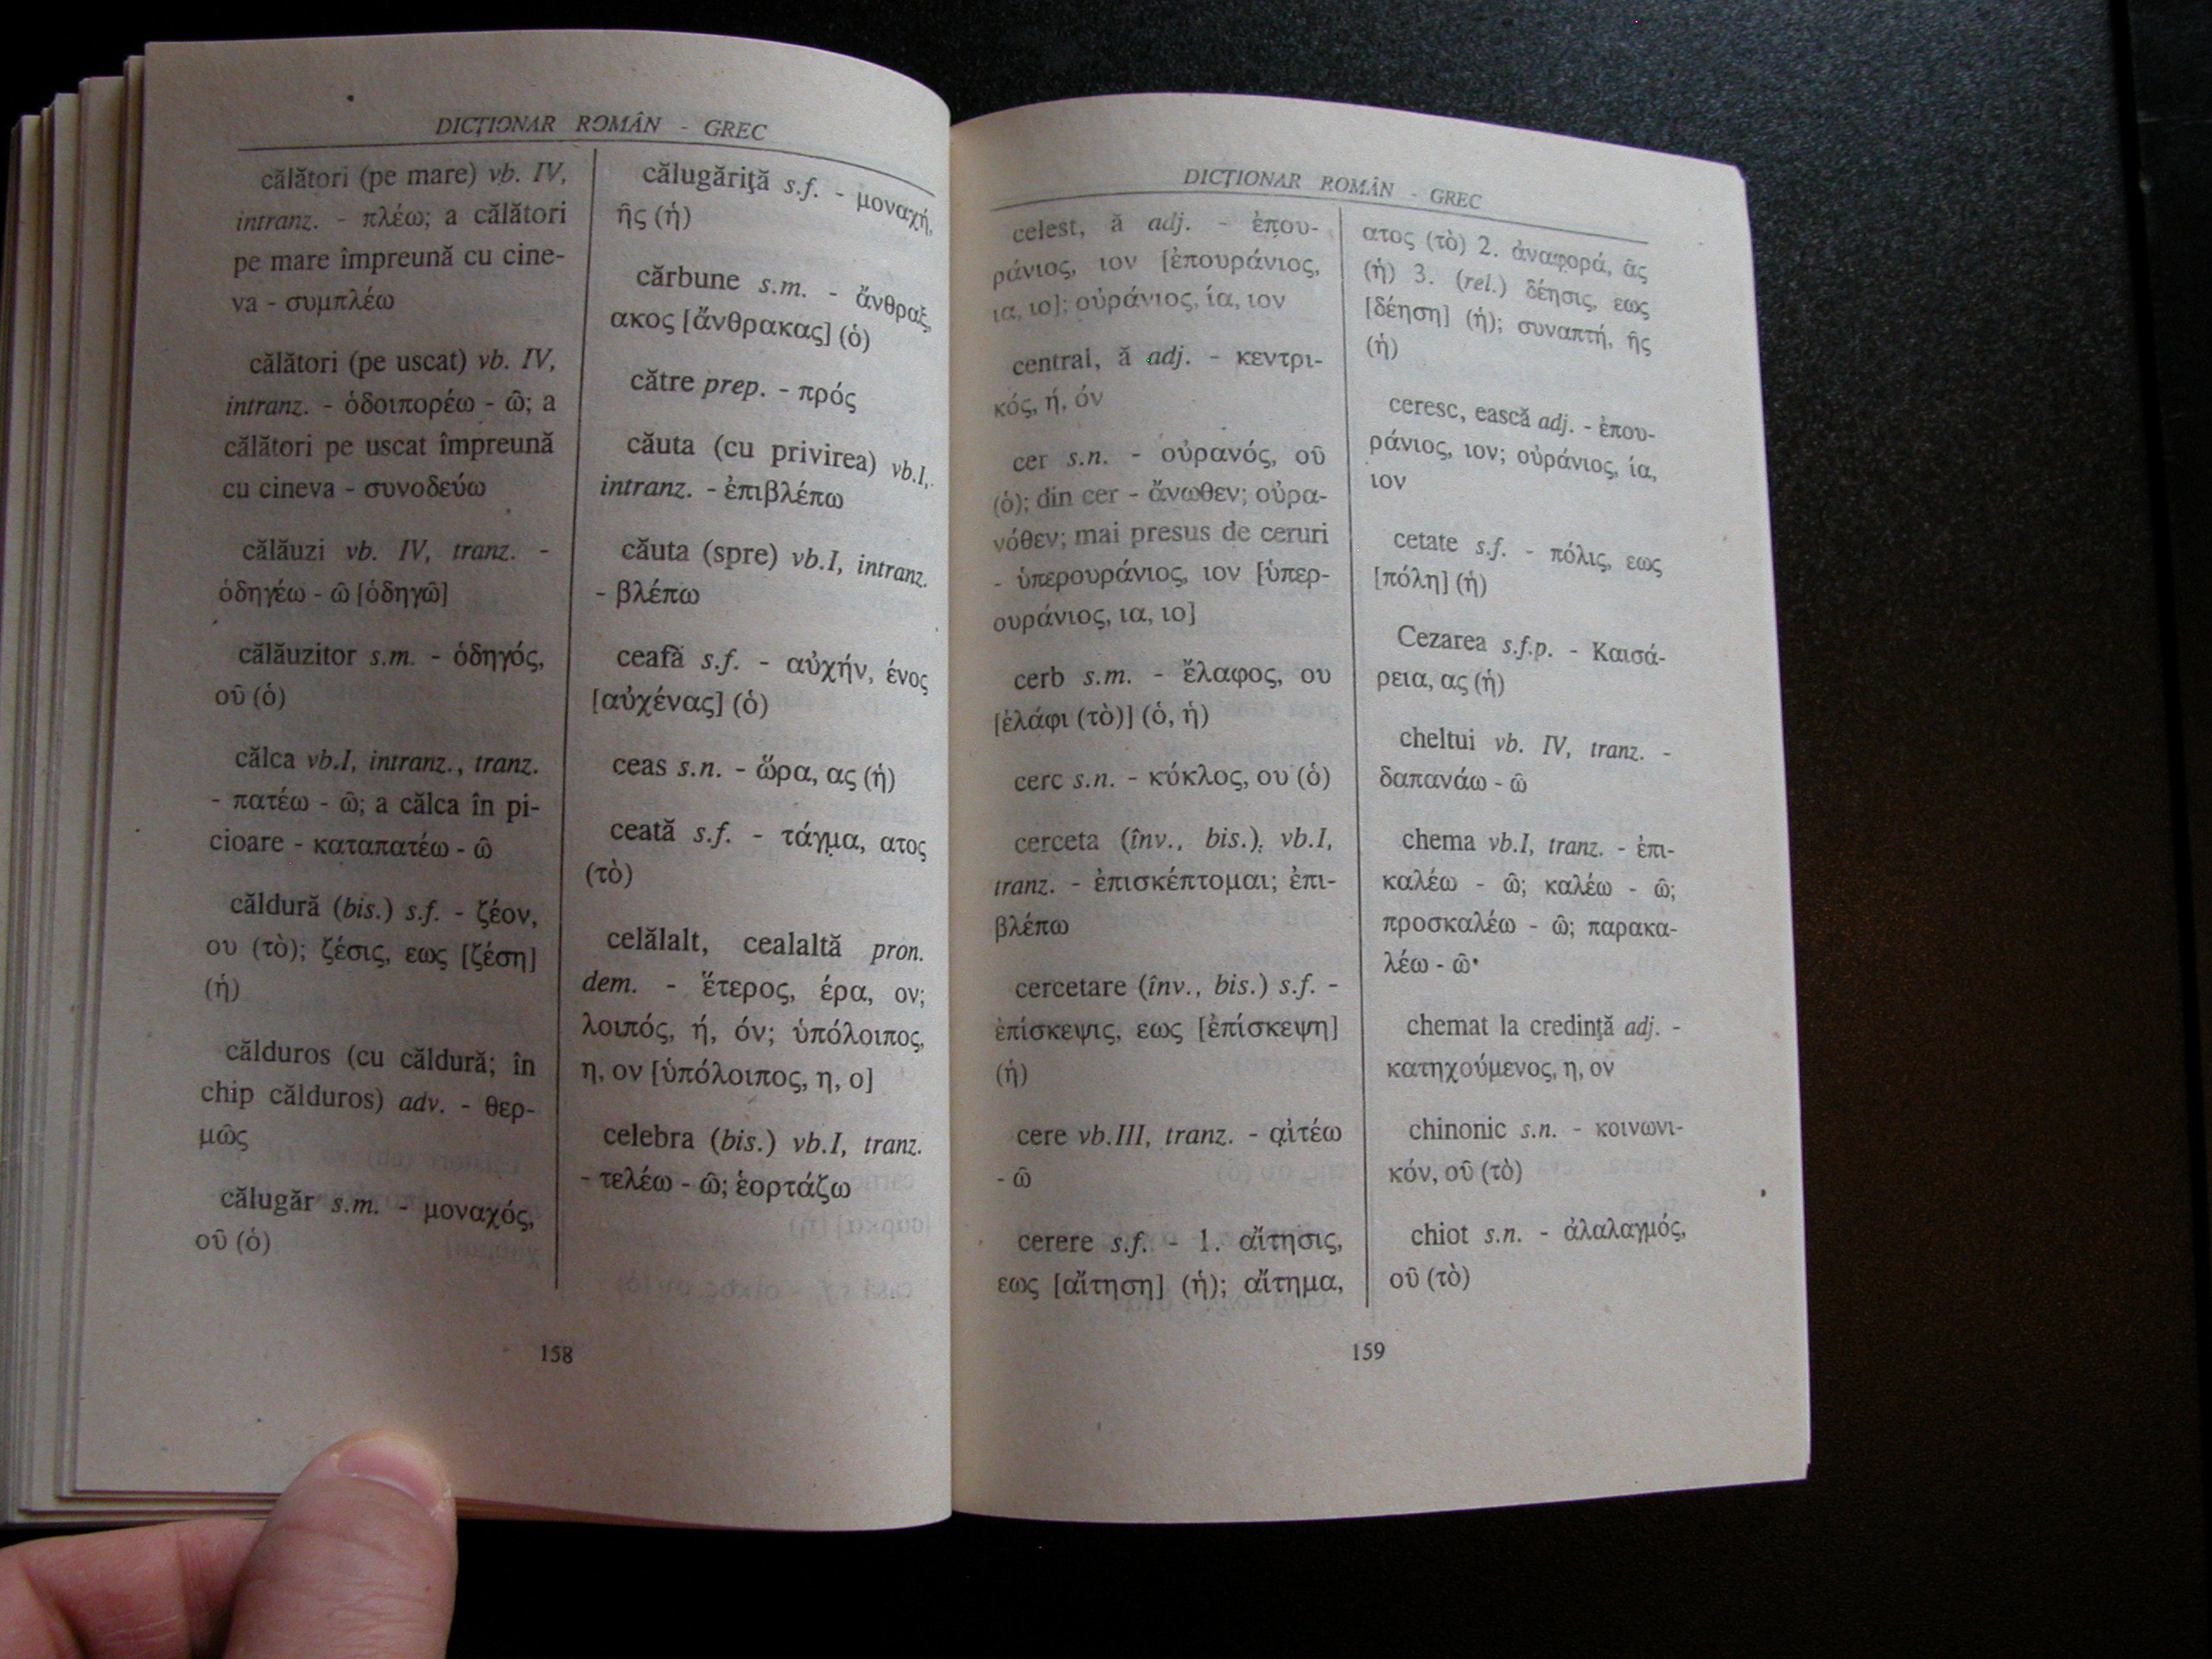 DICŢIONAR ROMÂN - GREC
călători (pe mare) vb. IV,
intranz. - πλέω; a călători
pe mare împreună cu cine-
va - συμπλέω
călători (pe uscat) vb. IV,
intranz. - ὁδοιπορέω - ῶ; a
călători pe uscat împreună
cu cineva - συνοδεύω
călăuzi vb. IV, tranz. -
ὁδηγέω - ῶ [ὁδηγῶ]
călăuzitor s.m. - ὁδηγός,
οῦ (ὁ)
călca vb.I, intranz., tranz.
- πατέω - ῶ; a călca în pi-
cioare - καταπατέω - ῶ
căldură (bis.) s.f. - ζέον,
ου (τὸ); ζέσις, εως [ζέση]
(ἡ)
călduros (cu căldură; în
chip călduros) adv. - θερ-
μῶς
călugăr s.m. - μοναχός,
οῦ (ὁ)
călugăriţă s.f. - μοναχή,
ῆς (ἡ)
cărbune s.m. - ἄνθραξ,
ακος [ἄνθρακας] (ὁ)
către prep. - πρός
căuta (cu privirea) vb.I,
intranz. - ἐπιβλέπω
căuta (spre) vb.I, intranz.
- βλέπω
ceafă s.f. - αὐχήν, ένος
[αὐχένας] (ὁ)
ceas s.n. - ὥρα, ας (ἡ)
ceată s.f. - τάγμα, ατος
(τὸ)
celălalt, cealaltă pron.
dem. - ἕτερος, έρα, ον;
λοιπός, ή, όν; ὑπόλοιπος,
η, ον [ὑπόλοιπος, η, ο]
celebra (bis.) vb.I, tranz.
- τελέω - ῶ; ἑορτάζω
158
DICŢIONAR ROMÂN - GREC
celest, ă adj. - ἐπου-
ράνιος, ιον [ἐπουράνιος,
ια, ιο]; οὐράνιος, ία, ιον
central, ă adj. - κεντρι-
κός, ή, όν
cer s.n. - οὐρανός, οῦ
(ὁ); din cer - ἄνωθεν; οὐρα-
νόθεν; mai presus de ceruri
- ὑπερουράνιος, ιον [ὑπερ-
ουράνιος, ια, ιο]
cerb s.m. - ἔλαφος, ου
[ἐλάφι (τὸ)] (ὁ, ἡ)
cerc s.n. - κύκλος, ου (ὁ)
cerceta (înv., bis.), vb.I,
tranz. - ἐπισκέπτομαι; ἐπι-
βλέπω
cercetare (înv., bis.) s.f. -
ἐπίσκεψις, εως [ἐπίσκεψη]
(ἡ)
cere vb.III, tranz. - αἰτέω
- ῶ
cerere s.f. - 1. αἴτησις,
εως [αἴτηση] (ἡ); αἴτημα,
ατος (τὸ) 2. ἀναφορά, ᾶς
(ἡ) 3. (rel.) δέησις, εως
[δέηση] (ἡ); συναπτή, ῆς
(ἡ)
ceresc, ească adj. - ἐπου-
ράνιος, ιον; οὐράνιος, ία,
ιον
cetate s.f. - πόλις, εως
[πόλη] (ἡ)
Cezarea s.f.p. - Καισά-
ρεια, ας (ἡ)
cheltui vb. IV, tranz. -
δαπανάω - ῶ
chema vb.I, tranz. - ἐπι-
καλέω - ῶ; καλέω - ῶ;
προσκαλέω - ῶ; παρακα-
λέω - ῶ
chemat la credinţă adj. -
κατηχούμενος, η, ον
chinonic s.n. - κοινωνι-
κόν, οῦ (τὸ)
chiot s.n. - ἀλαλαγμός,
οῦ (τὸ)
159